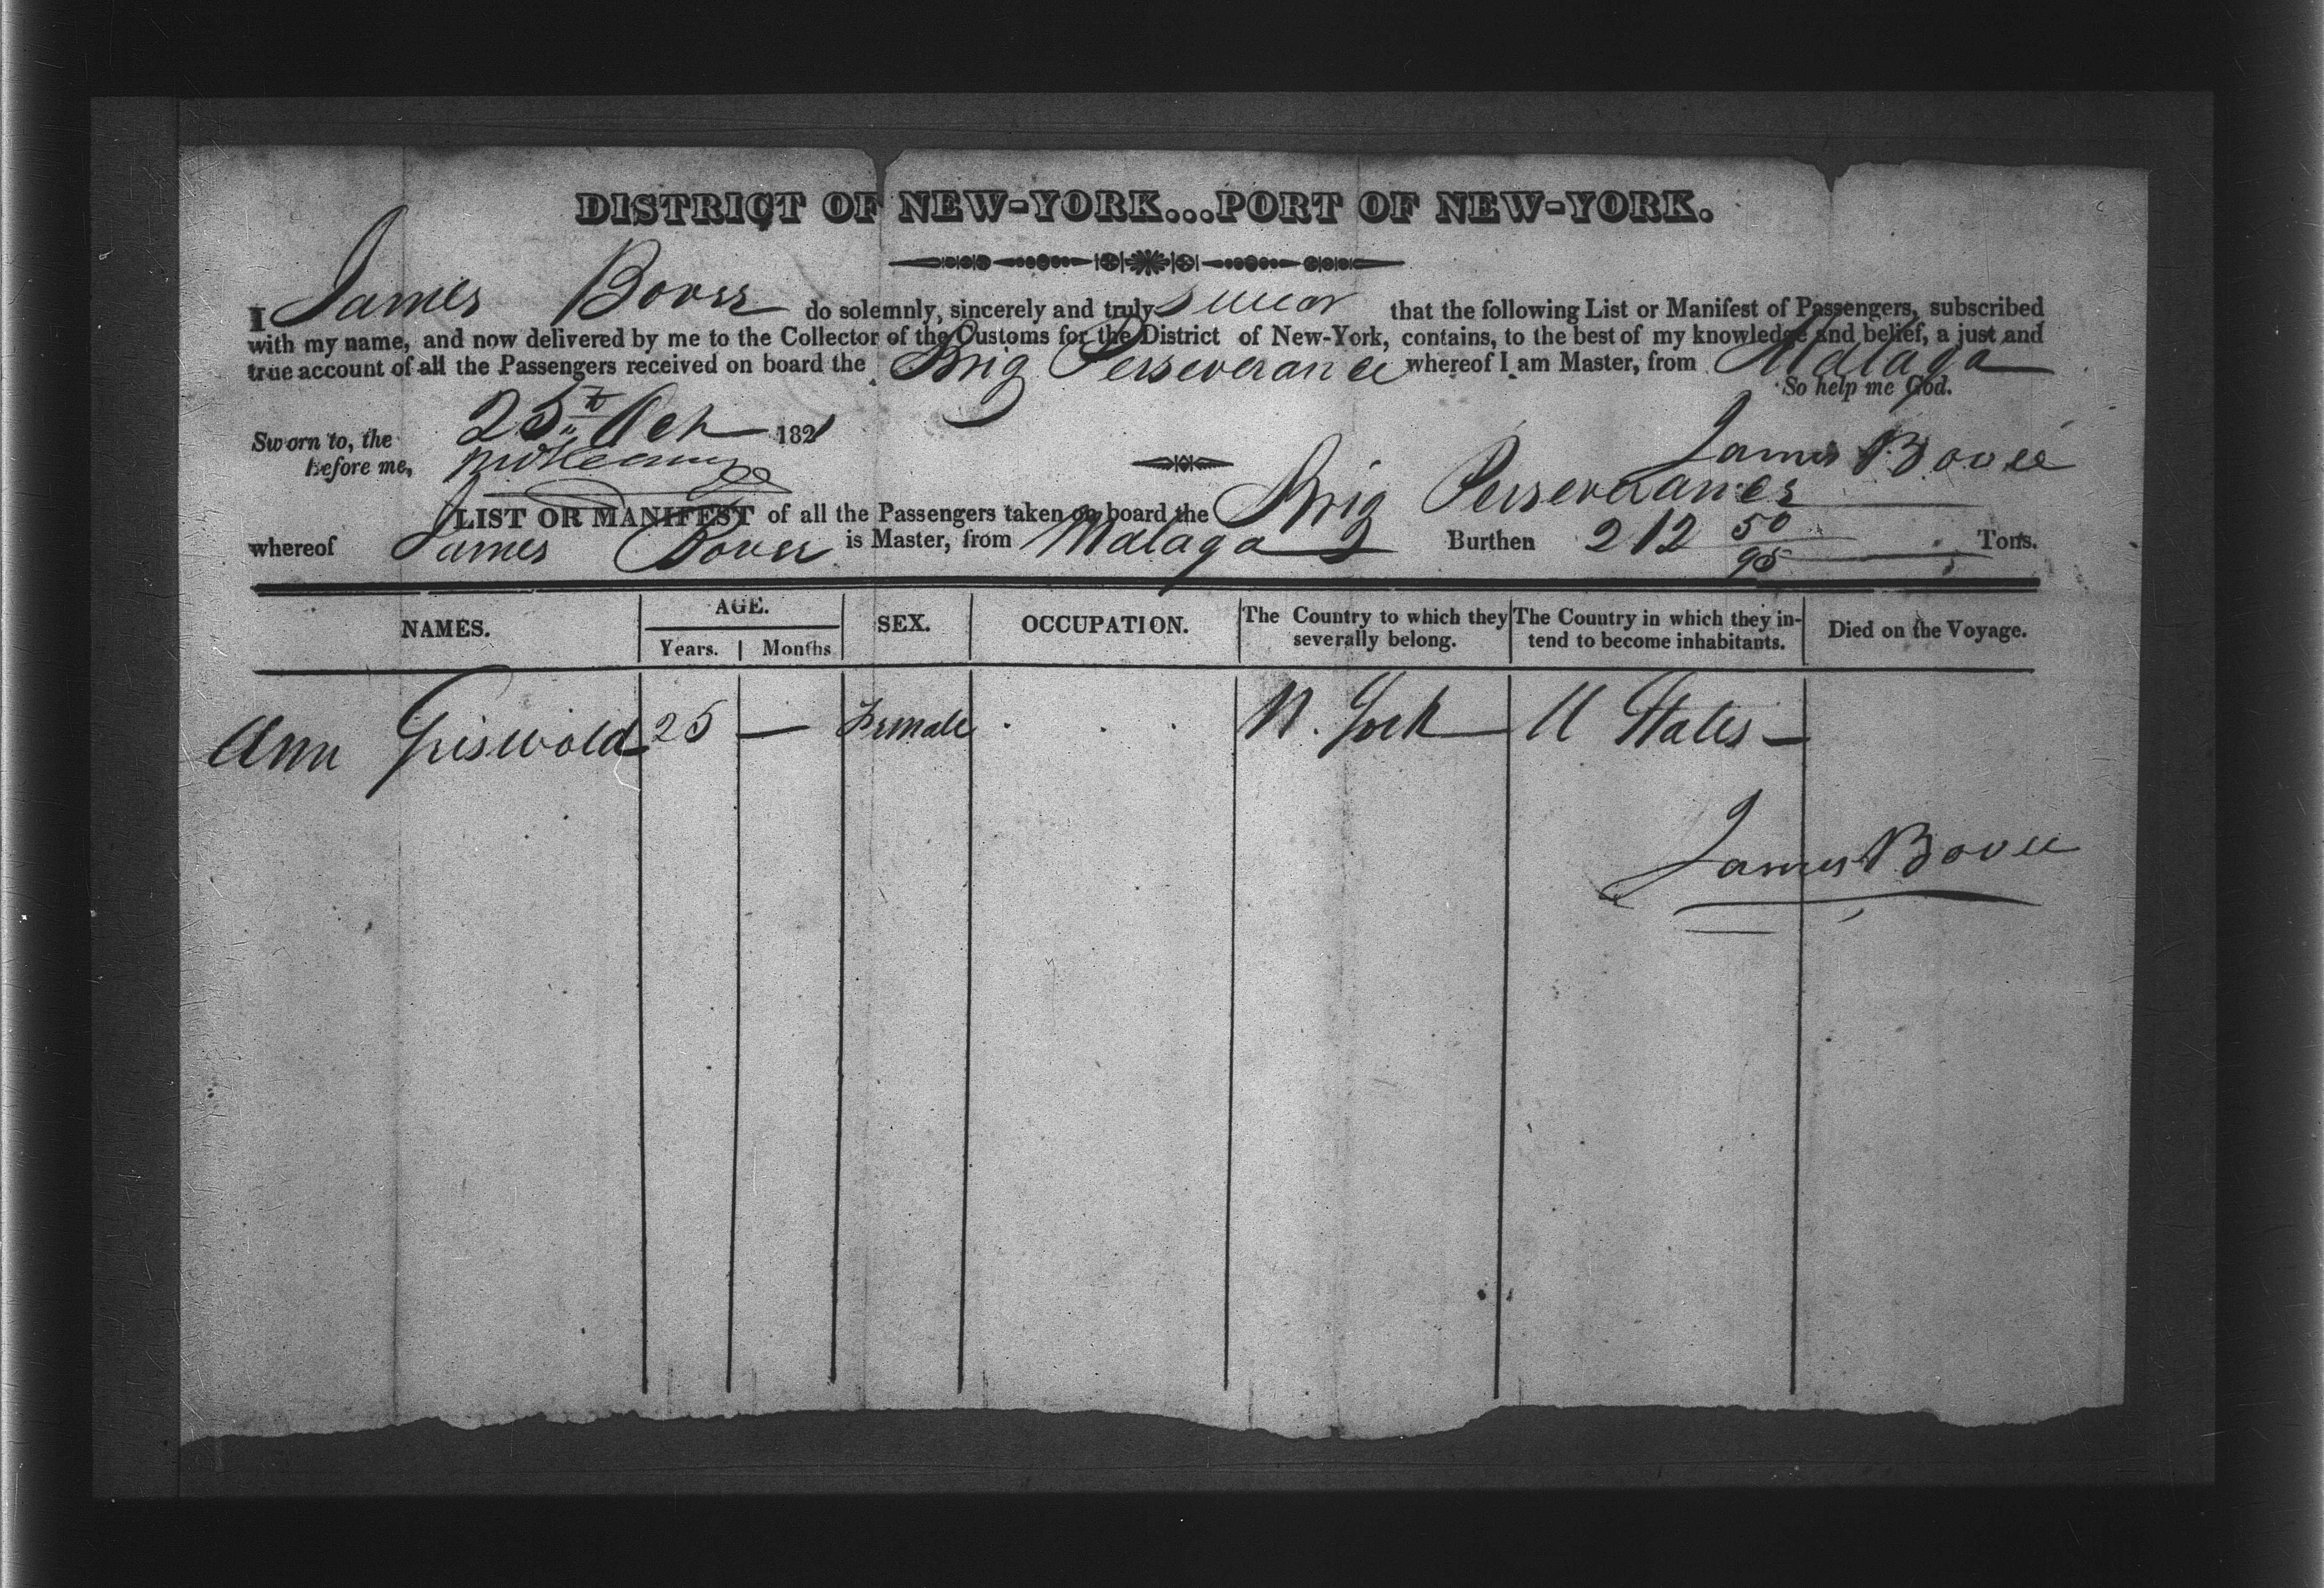 DISTRICT OF NEW-YORK...PORT OF NEW-YORK.
I James Bovee do solemnly, sincerely and truly swear that the following List or Manifest of Passengers, subscribed
with my name, and now delivered by me to the Collector of the Customs for the District of New-York, contains, to the best of my knowledge and belief, a just and
true account of all the Passengers received on board the Brig Perseverance whereof I am Master, from Malaga
So help me God.
Sworn to, the 25th Oct 1821
before me,
James Bovee
LIST OR MANIFEST of all the Passengers taken on board the Brig Perseverance
whereof James Bovee is Master, from Malaga Burthen 212 50/95 Tons.
NAMES. AGE. Years. Months SEX. OCCUPATION. The Country to which they severally belong. The Country in which they intend to become inhabitants. Died on the Voyage.
Ann Griswold 25 — Female N. York U States —
James Bovee